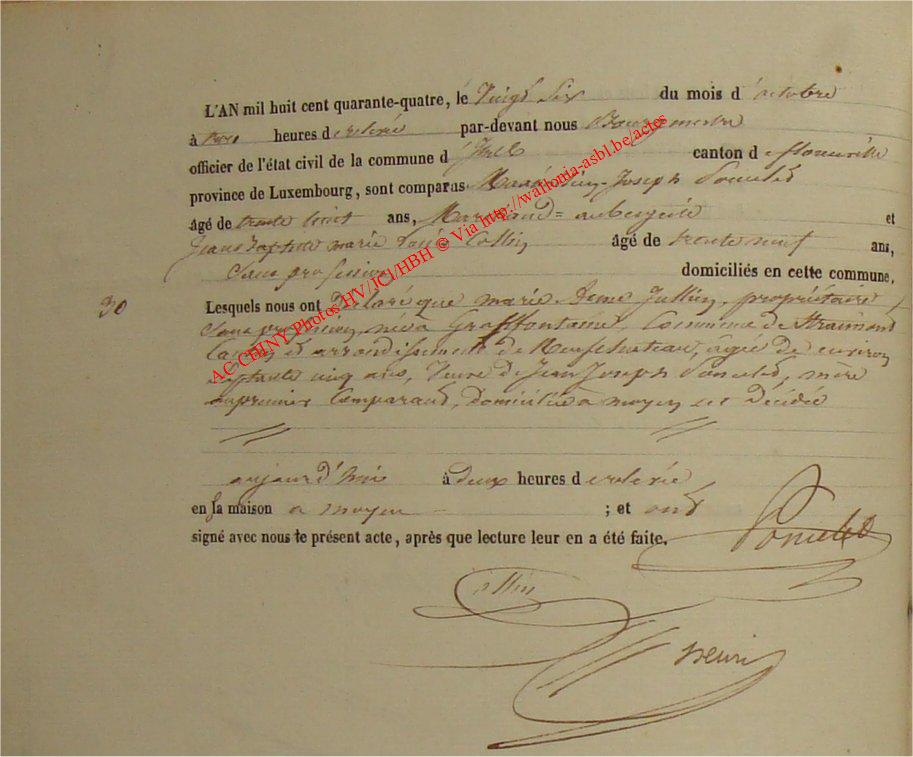 L'AN mil huit cent quarante-quatre, le Vingt Six du mois d'octobre
à trois heures de relevée par-devant nous Bourgmestre
officier de l'état civil de la commune d' canton de florenville
province de Luxembourg, sont comparus Joseph Poncelet
âgé de trente huit ans, Marchand = aubergiste et
Jean Baptiste marie Collin âgé de trente neuf ans,
Sans profession domiciliés en cette commune,
30
Lesquels nous ont Déclaré que marie Jullien, propriétaire
Sans profession, née à Grapfontaine, Commune de Straimont
Canton et arrondissement de Neufchateau, âgée de environ
septante cinq ans, Veuve de Jean Joseph Poncelet, mère
au premier Comparant, domiciliée a moyen est Décédée
aujourd'hui à deux heures de relevée
en sa maison a moyen ; et ont
signé avec nous le présent acte, après que lecture leur en a été faite.
Poncelet
Collin
henri
AC CHINY Photos HV/JCJ/HBH © Via http://wallonia-asbl.be/actes